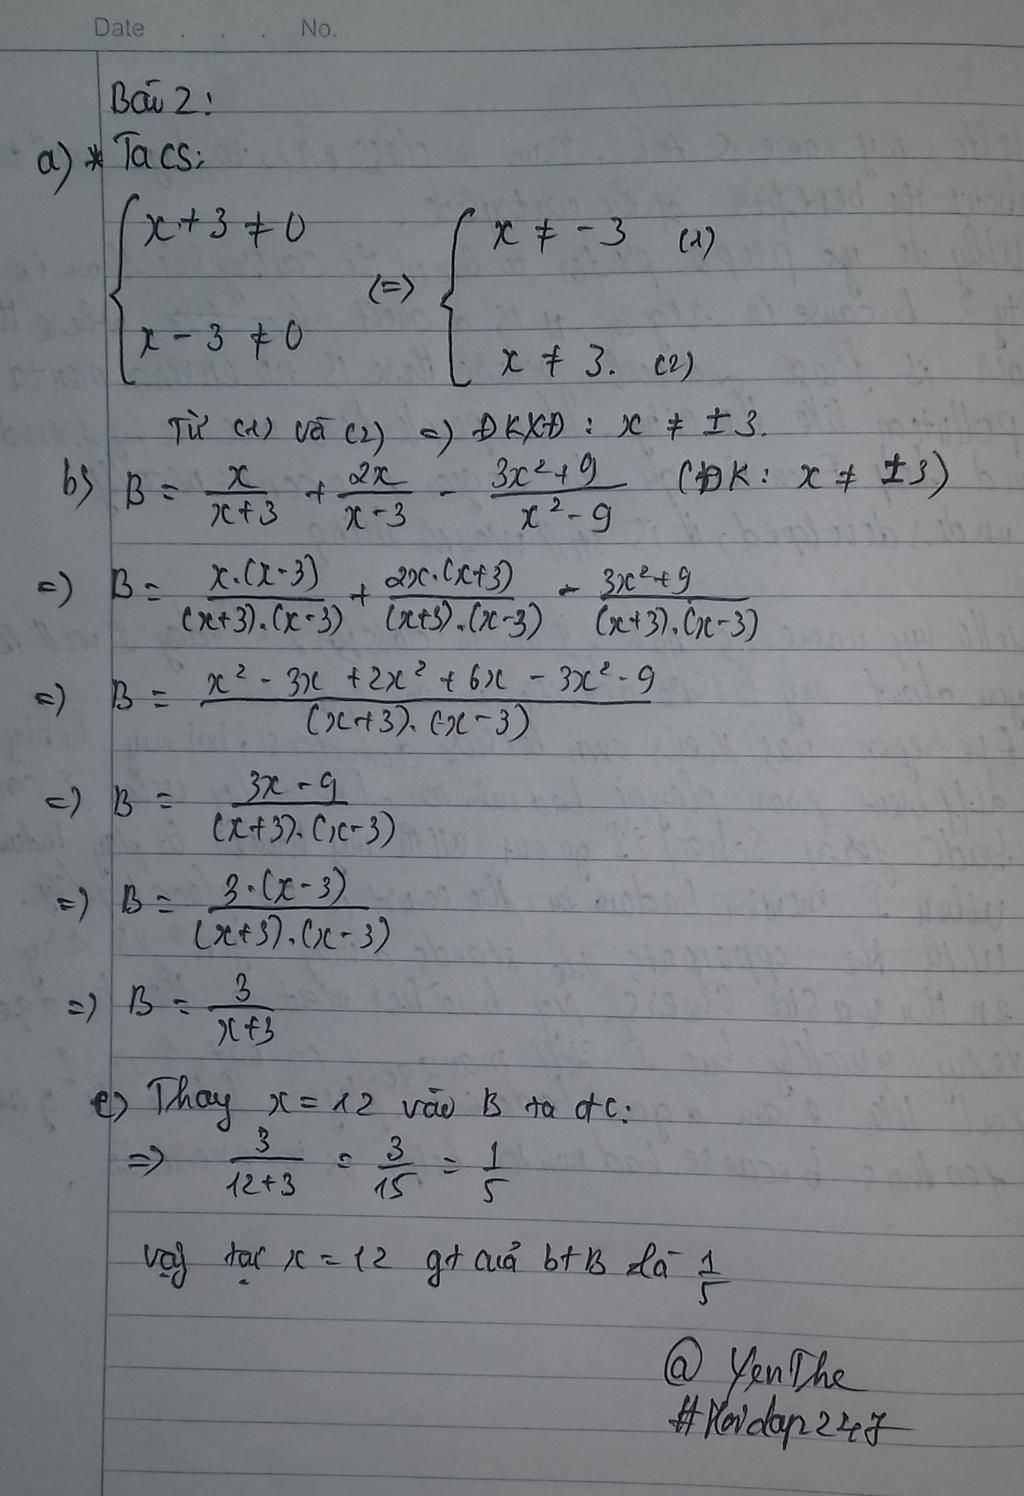 Date . . . No.
Bài 2:
a) * Ta có:
{ x + 3 ≠ 0 (=) { x ≠ -3 (1)
x - 3 ≠ 0 x ≠ 3. (2)
Từ (1) và (2) =) ĐKXĐ : x ≠ ± 3.
b) B = x/(x+3) + 2x/(x-3) - (3x² + 9)/(x² - 9) (ĐK : x ≠ ±3)
=) B = x.(x-3)/((x+3).(x-3)) + 2x.(x+3)/((x+3).(x-3)) - (3x²+9)/((x+3).(x-3))
=) B = (x² - 3x + 2x² + 6x - 3x² - 9)/((x+3).(x-3))
=) B = (3x - 9)/((x+3).(x-3))
=) B = 3.(x-3)/((x+3).(x-3))
=) B = 3/(x+3)
c) Thay x = 12 vào B ta đc:
=> 3/(12+3) = 3/15 = 1/5
Vậy tại x = 12 gt của bt B là 1/5
@ YenThe
#Hoidap247